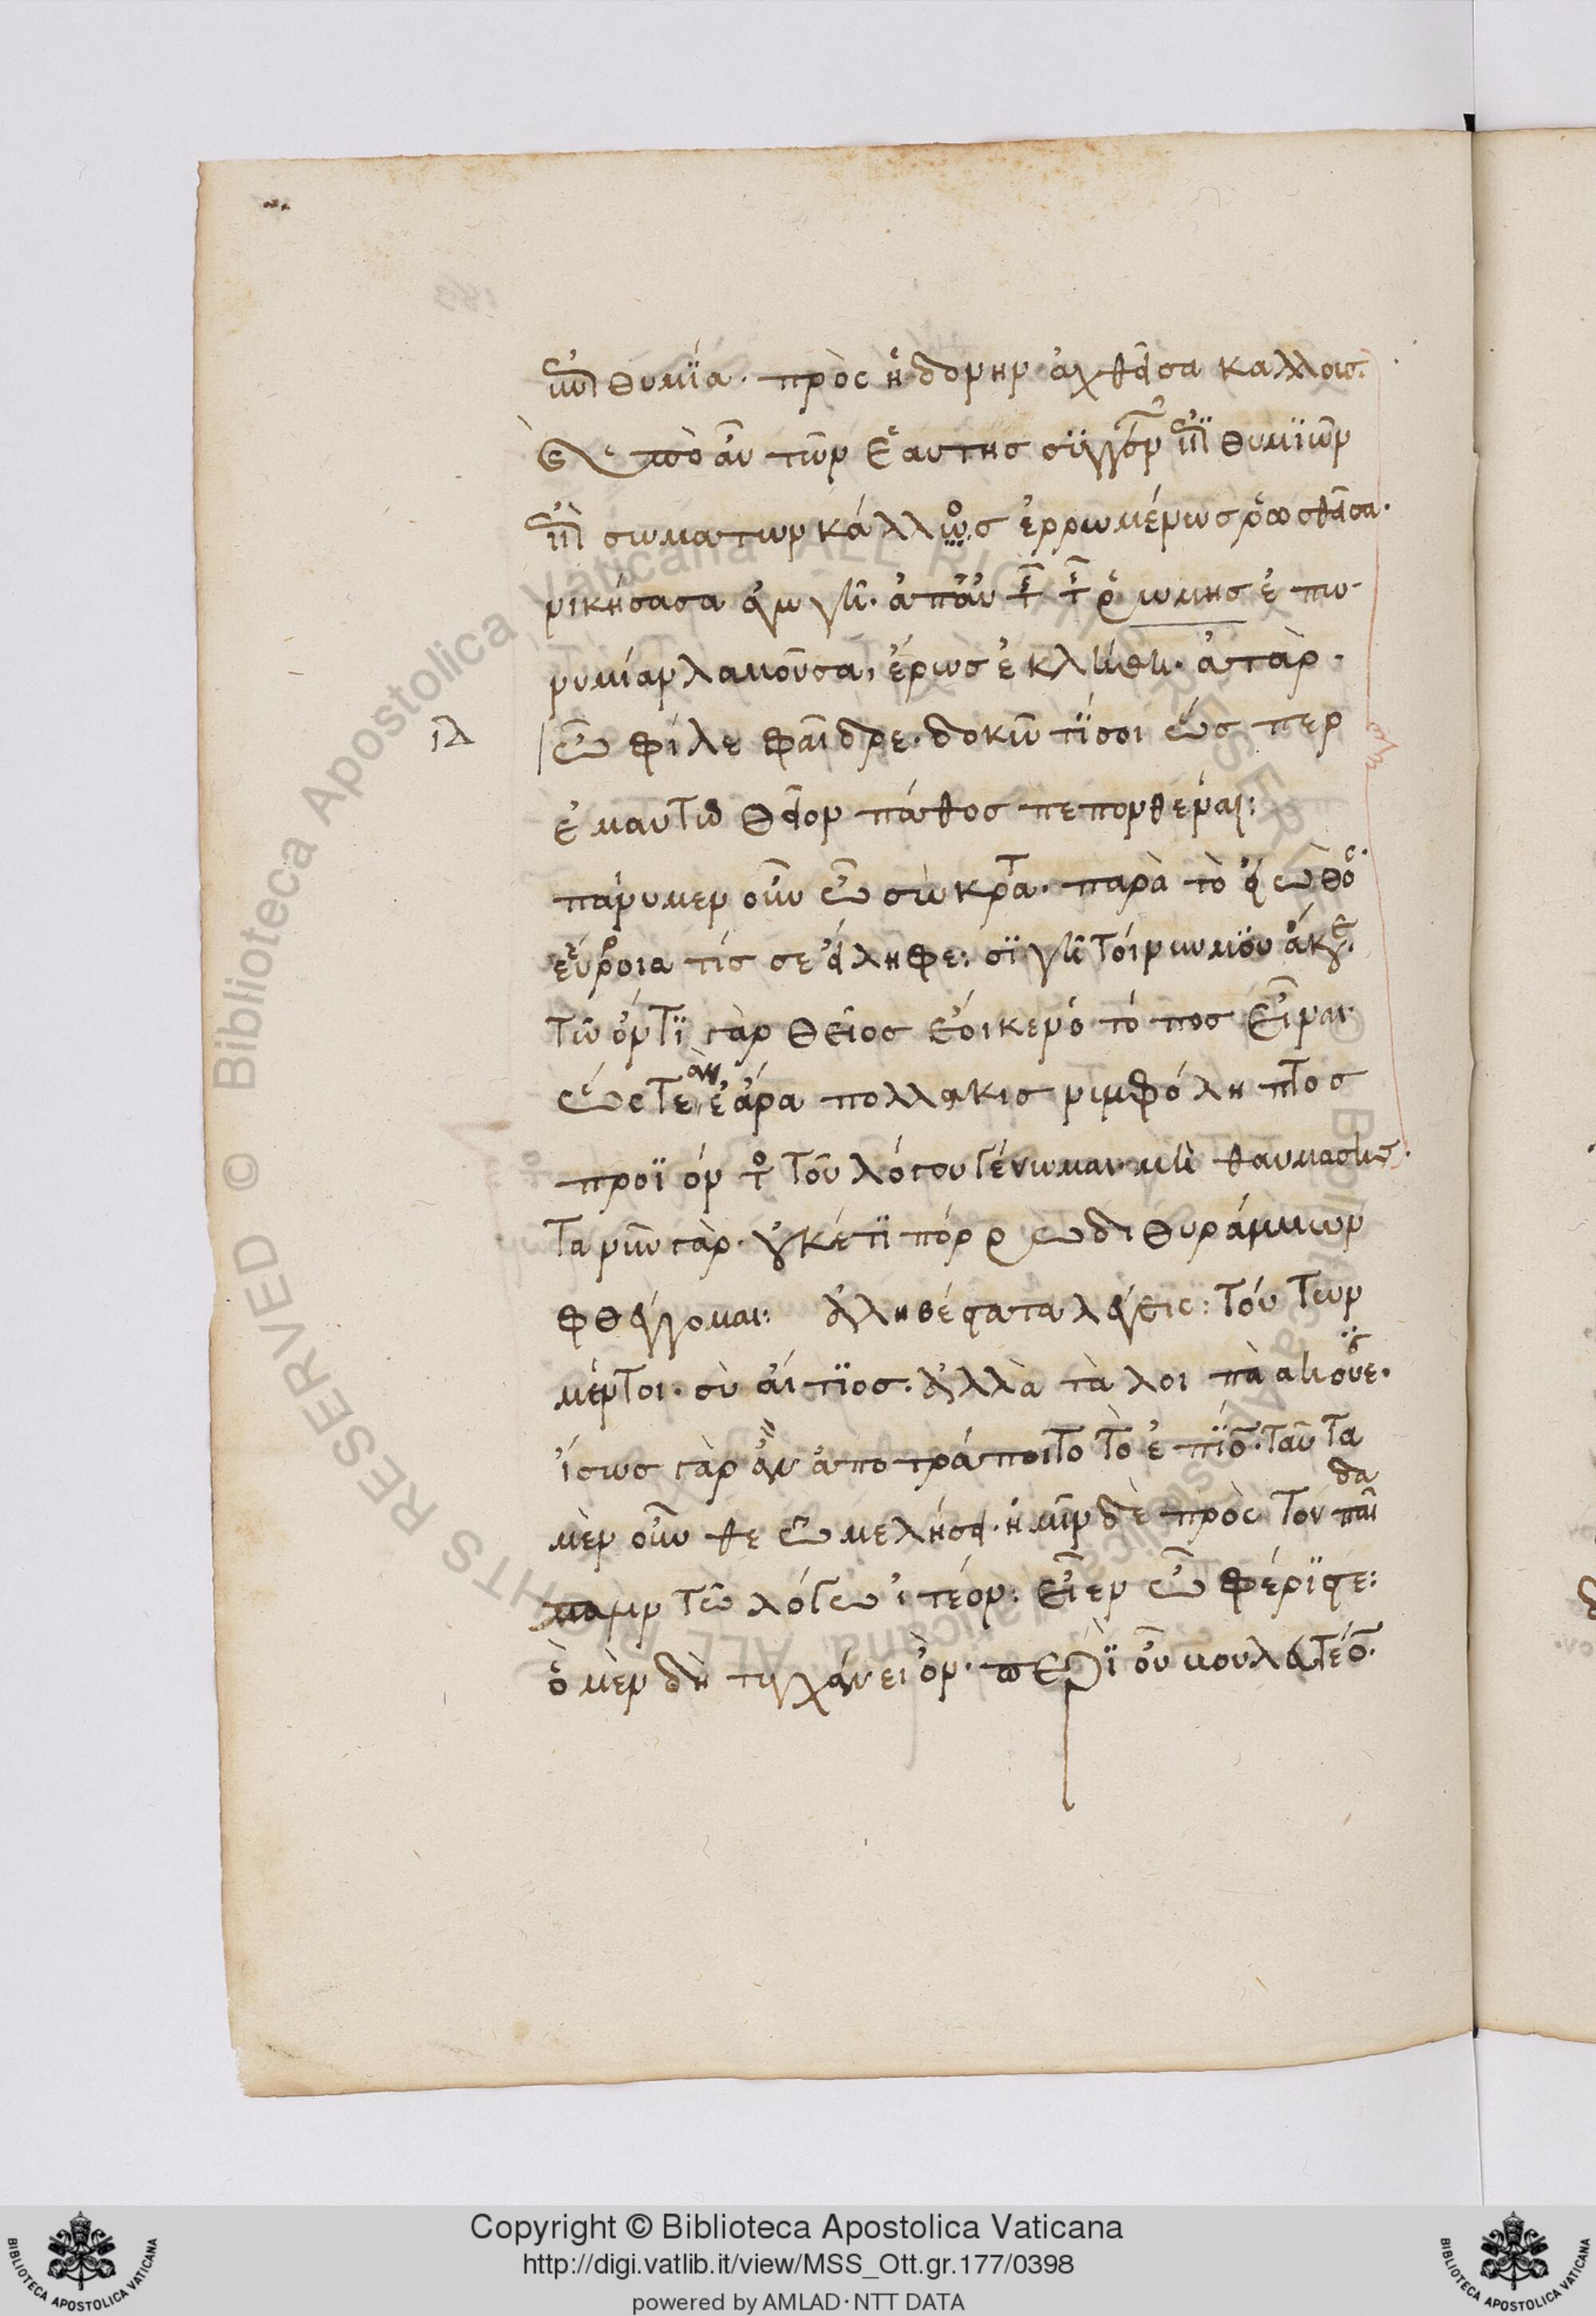 ἐπιθυμΐα· πρὸς ἡδονὴν ἀχθεῖσα κάλλους·
καὶ ὑπὸ αὖ τῶν ἑαυτῆς συγγενῶν ἐπιθυμϊῶν
ἐπὶ σωμάτων κάλλος ἐρρωμένως ῥωσθεῖσα·
νικήσασα ἀγωγῆ· ἀπ' αὐτῆς τῆς ῥώμης ἐπω-
νυμίαν λαβοῦσα, ἔρως ἐκλήθη· ἀτὰρ·
ιδ
ὦ φίλε φαῖδρε· δοκῶ τί σοι ὥσπερ
ἐμαυτῶ θεῖον πάθος πεπονθέναι:
πάνυ μὲν οὖν ὦ σώκρατες· παρὰ τὸ εἰωθὸς·
εὔροιά τίς σε εἴληφε: σϊγῆ τοίνυν μου ἄκουε·
τῶ ὄντϊ γὰρ θεῖος ἔοικεν ὁ τόπος εἶναι·
ὥςτε ἐὰν ἄρα πολλάκις νυμφόληπτος
προϊόντος τοῦ λόγου γένωμαι· μὴ θαυμάσης·
τα νῦν γὰρ· οὐκέτϊ πόρρω διθυράμβων
φθέγγομαι: ἀληθέστατα λέγεις: τούτων
μέντοι· σὺ αἴτϊος· ἀλλὰ τὰ λοιπὰ ἄκουε·
ἴσως γὰρ ἂν ἀποτράποιτο τὸ ἐπϊόν· ταῦτα
μὲν οὖν θεῶ μελήσει· ἡμῖν δὲ πρὸς τὸν παῖδα
πάλιν τῶ λόγω ἰτέον: εἶεν ὦ φέρϊστε:
ὃ μὲν δὴ τυγχάνει ὂν· περὶ οὗ βουλευτέον·
Copyright © Biblioteca Apostolica Vaticana
http://digi.vatlib.it/view/MSS_Ott.gr.177/0398
powered by AMLAD·NTT DATA
BIBLIOTECA APOSTOLICA VATICANA
BIBLIOTECA APOSTOLICA VATICANA
© Biblioteca Apostolica Vaticana ALL RIGHTS RESERVED